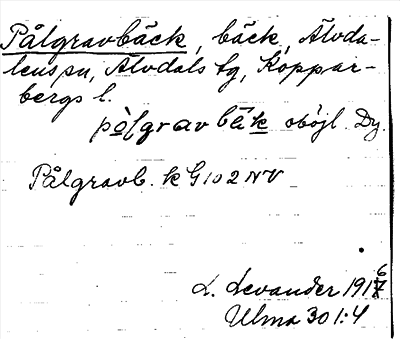 Pålgravbäck, bäck, Älvda-
lens sn, Älvdals tg, Koppar-
bergs l.
pò̱lgrav bä̀k oböjl. Dy.
Pålgravb. k G 102 NV
L. Levander 1916
Ulma 30 1:4